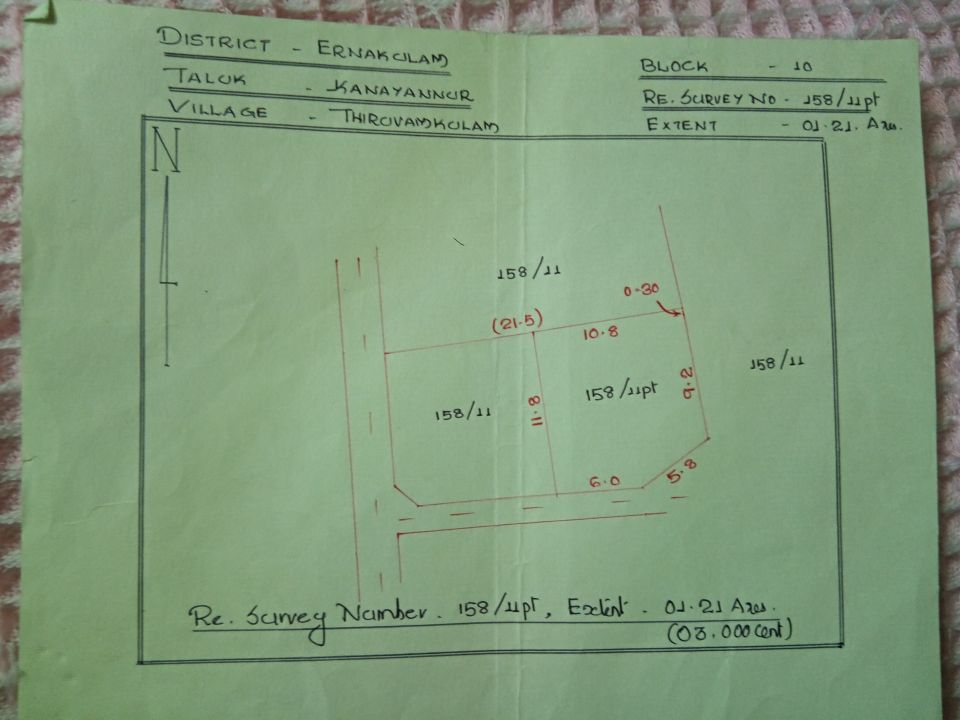 DISTRICT - ERNAKULAM
TALUK - KANAYANNUR
VILLAGE - THIRUVAMKULAM
BLOCK - 10
RE. SURVEY NO - 158/11pt
EXTENT - 01.21. Ares.
N
158/11
0.30
(21.5)
10.8
158/11
158/11
11.8
158/11pt
9.2
6.0
5.8
Re. Survey Number. 158/11pt, Extent. 01.21 Ares.
(03.000 Cent)